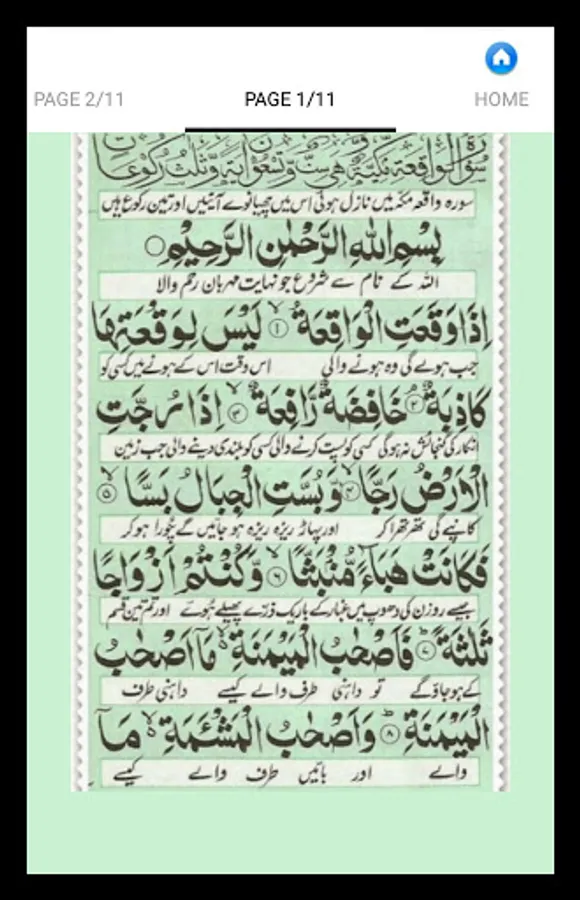 PAGE 2/11
PAGE 1/11
HOME
سورة الواقعة مكية وهي ست وتسعون آية وثلث ركوعات
سورہ واقعہ مکہ میں نازل ہوئی اس میں چھیانوے آیتیں اور تین رکوع ہیں
بِسْمِ اللهِ الرَّحْمٰنِ الرَّحِيْمِ
اللہ کے نام سے شروع جو نہایت مہربان رحم والا
اِذَا وَقَعَتِ الْوَاقِعَةُ ۙ۝۱ لَيْسَ لِوَقْعَتِهَا
جب ہولے گی وہ ہونے والی اس وقت اس کے ہونے میں کسی کو
كَاذِبَةٌ ۘ۝۲ خَافِضَةٌ رَّافِعَةٌ ۙ۝۳ اِذَا رُجَّتِ
انکار کی گنجائش نہ ہوگی کسی کو پست کرنے والی کسی کو بلندی دینے والی جب زمین
الْاَرْضُ رَجًّا ۙ۝۴ وَّبُسَّتِ الْجِبَالُ بَسًّا ۙ۝۵
کانپے گی تھرتھرا کر اور پہاڑ ریزہ ریزہ ہو جائیں گے چورا ہو کر
فَكَانَتْ هَبَآءً مُّنْۢبَثًّا ۙ۝۶ وَّكُنْتُمْ اَزْوَاجًا
جیسے روزن کی دھوپ میں غبار کے باریک ذرّے پھیلے ہوئے اور تم تین قسم
ثَلٰثَةً ؕ۝۷ فَاَصْحٰبُ الْمَيْمَنَةِ ۙ مَاۤ اَصْحٰبُ
کے ہو جاؤ گے تو داہنی طرف والے کیسے داہنی طرف
الْمَيْمَنَةِ ؕ۝۸ وَاَصْحٰبُ الْمَشْـَٔمَةِ ۙ مَاۤ
والے اور بائیں طرف والے کیسے